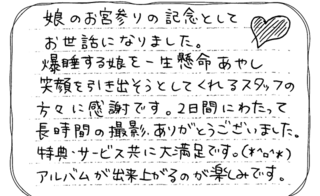 娘のお宮参りの記念として
お世話になりました。
爆睡する娘を一生懸命あやし
笑顔を引き出そうとしてくれるスタッフの
方々に感謝です。2日間にわたって
長時間の撮影、ありがとうございました。
特典・サービス共に大満足です。(*^o^*)
アルバムが出来上がるのが楽しみです。